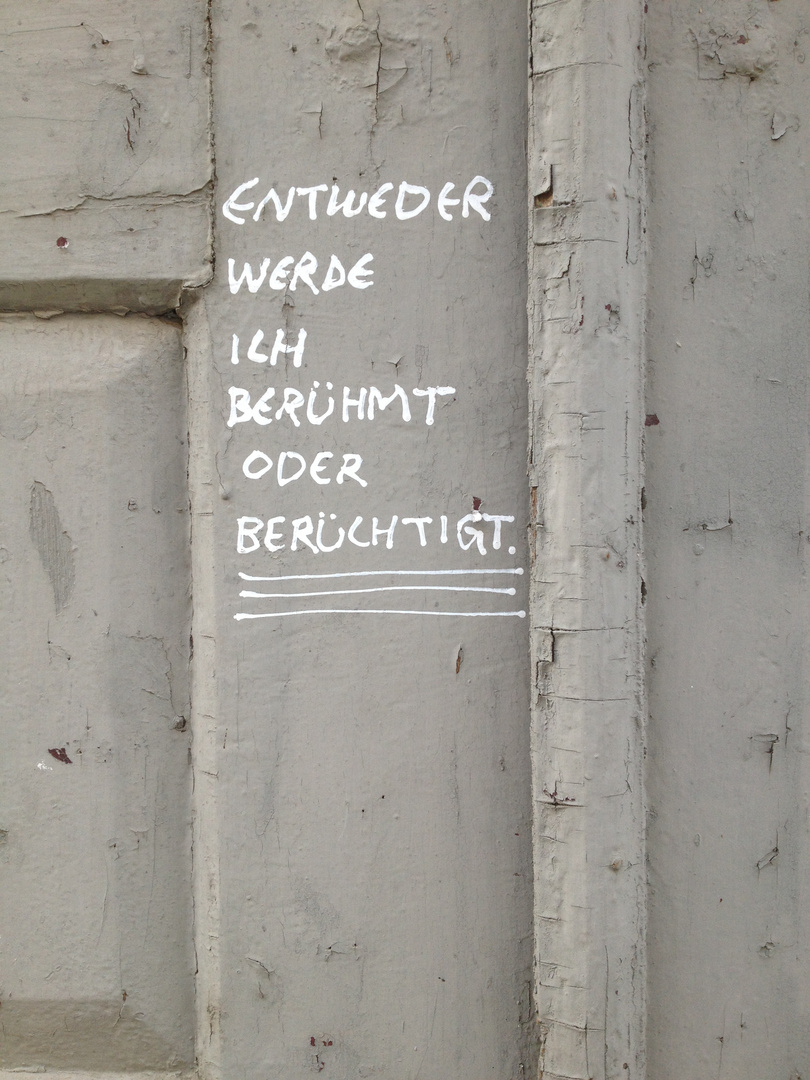 ENTWEDER
WERDE
ICH
BERÜHMT
ODER
BERÜCHTIGT.